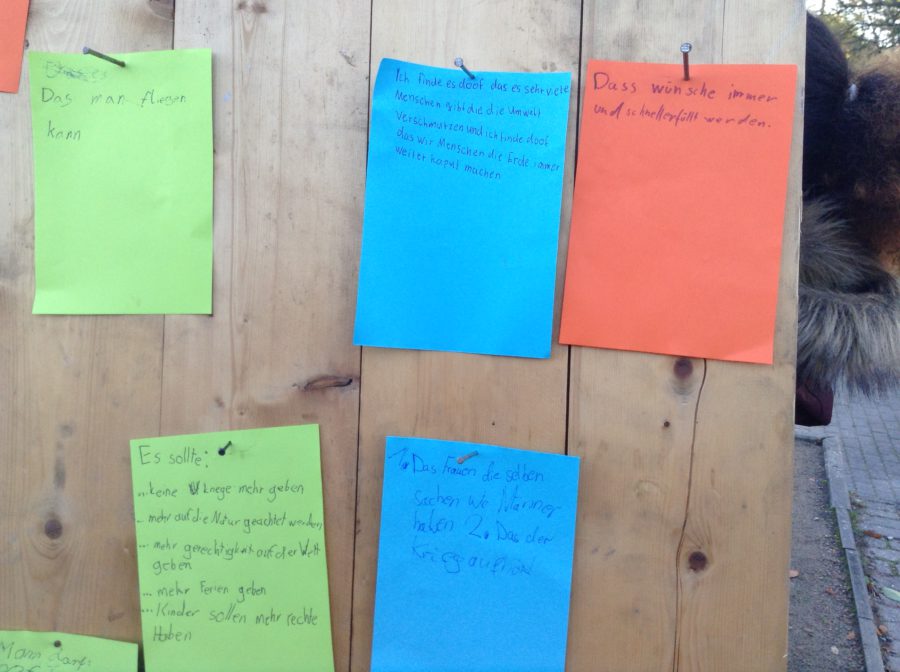 Das man fliegen
kann
Ich finde es doof das es sehr viele
Menschen gibt die die Umwelt
verschmutzen und ich finde doof
das wir Menschen die Erde immer
weiter kaput machen
Dass wünsche immer
und schnell erfüllt werden.
Es sollte:
...keine kriege mehr geben
... mehr auf die Natur geachtet werden
... mehr gerechtigkeit auf der Welt
geben
... mehr Ferien geben
... Kinder sollen mehr rechte
Haben
1. Das Frauen die selben
sachen wie Männer
haben 2. Das der
krieg aufhört
Mann darf